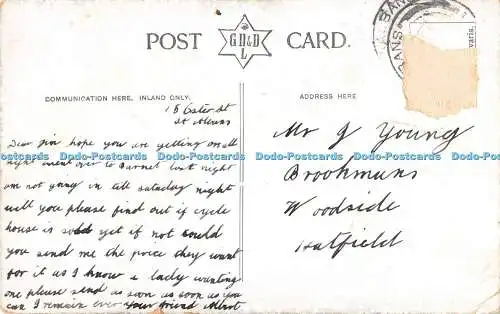 POST CARD.
G D & D
L
BANS
BANS
COMMUNICATION HERE, INLAND ONLY.
ADDRESS HERE
15 St
St Albans
Dear Jim hope you are getting on all
right went over to Barnet last night
am not going in till satuday night
will you please find out if cycle
house is sold yet if not could
you send me the price they want
for it as I know a lady wanting
one please send as soon as soon as you
can I remain ever your friend
Mr J Young
Brookmans
Woodside
Hatfield
War-Postcards War-Postcards War-Postcards War-Postcards